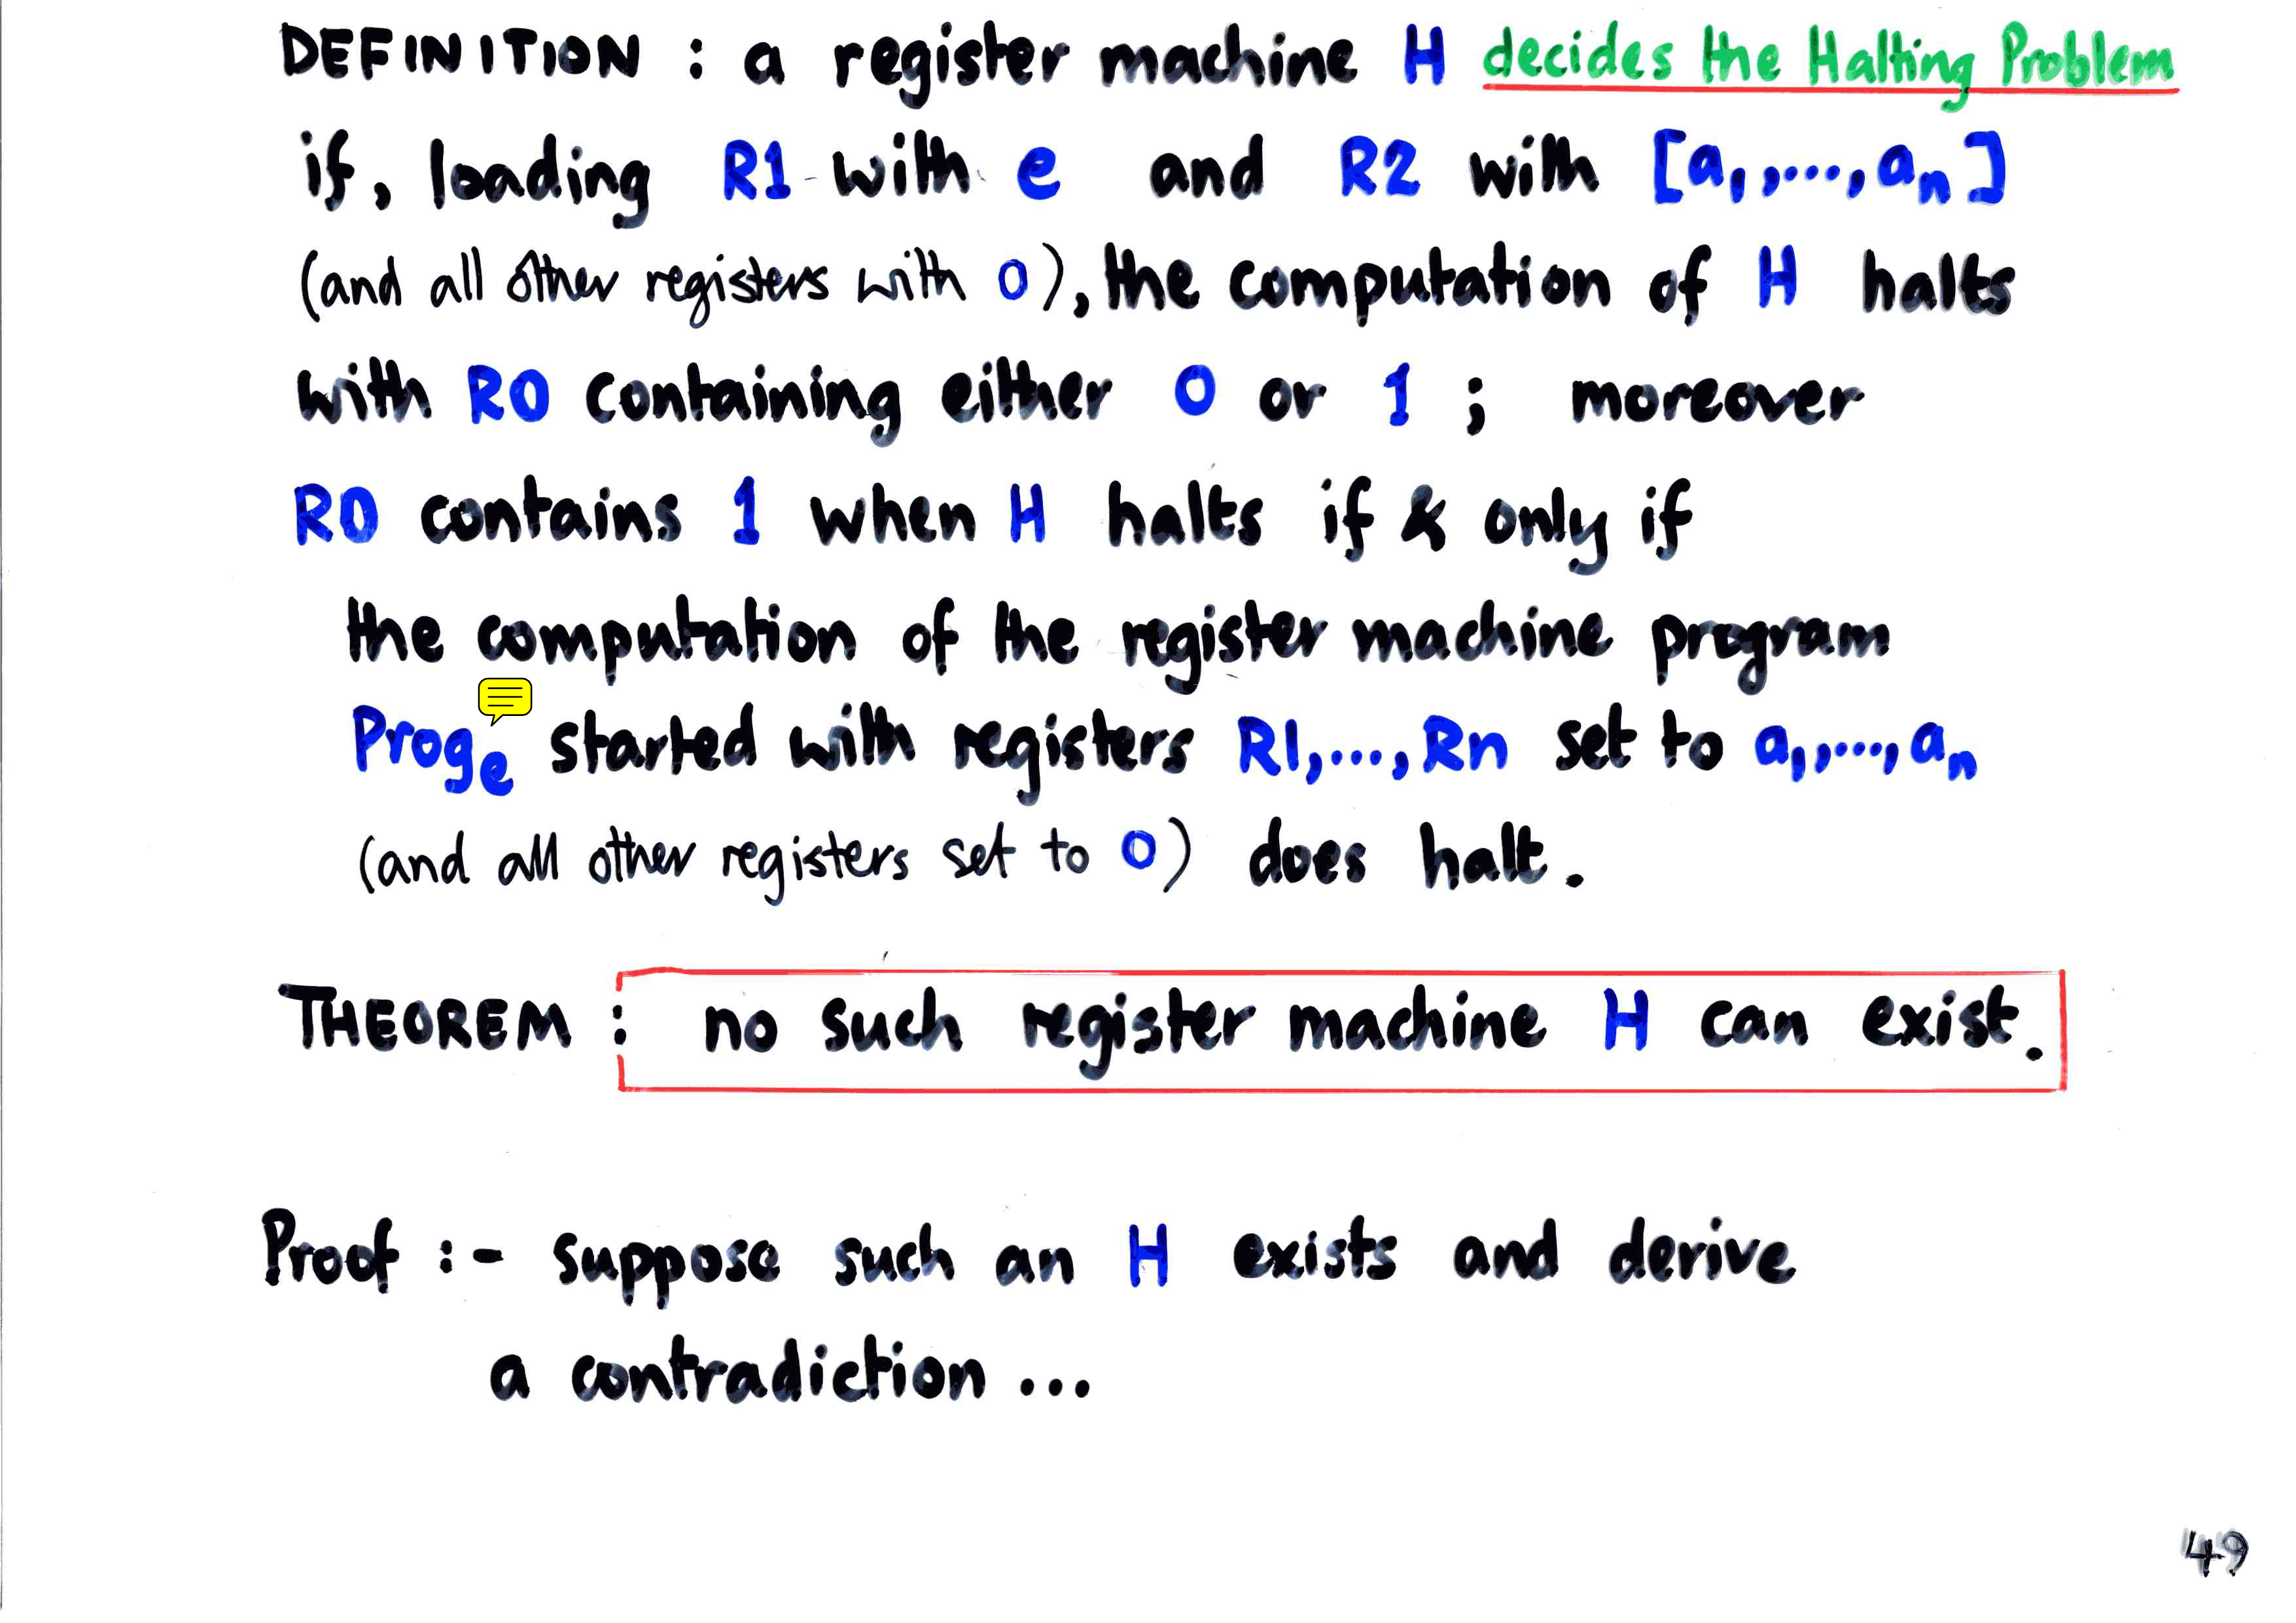 DEFINITION : a register machine H decides the Halting Problem
if, loading R1 with e and R2 with [a₁,....,aₙ]
(and all other registers with 0), the computation of H halts
with R0 containing either 0 or 1 ; moreover
R0 contains 1 when H halts if & only if
the computation of the register machine program
Progₑ started with registers R1,....,Rn set to a₁,....,aₙ
(and all other registers set to 0) does halt.
THEOREM : no such register machine H can exist.
Proof :- suppose such an H exists and derive
a contradiction ...
49